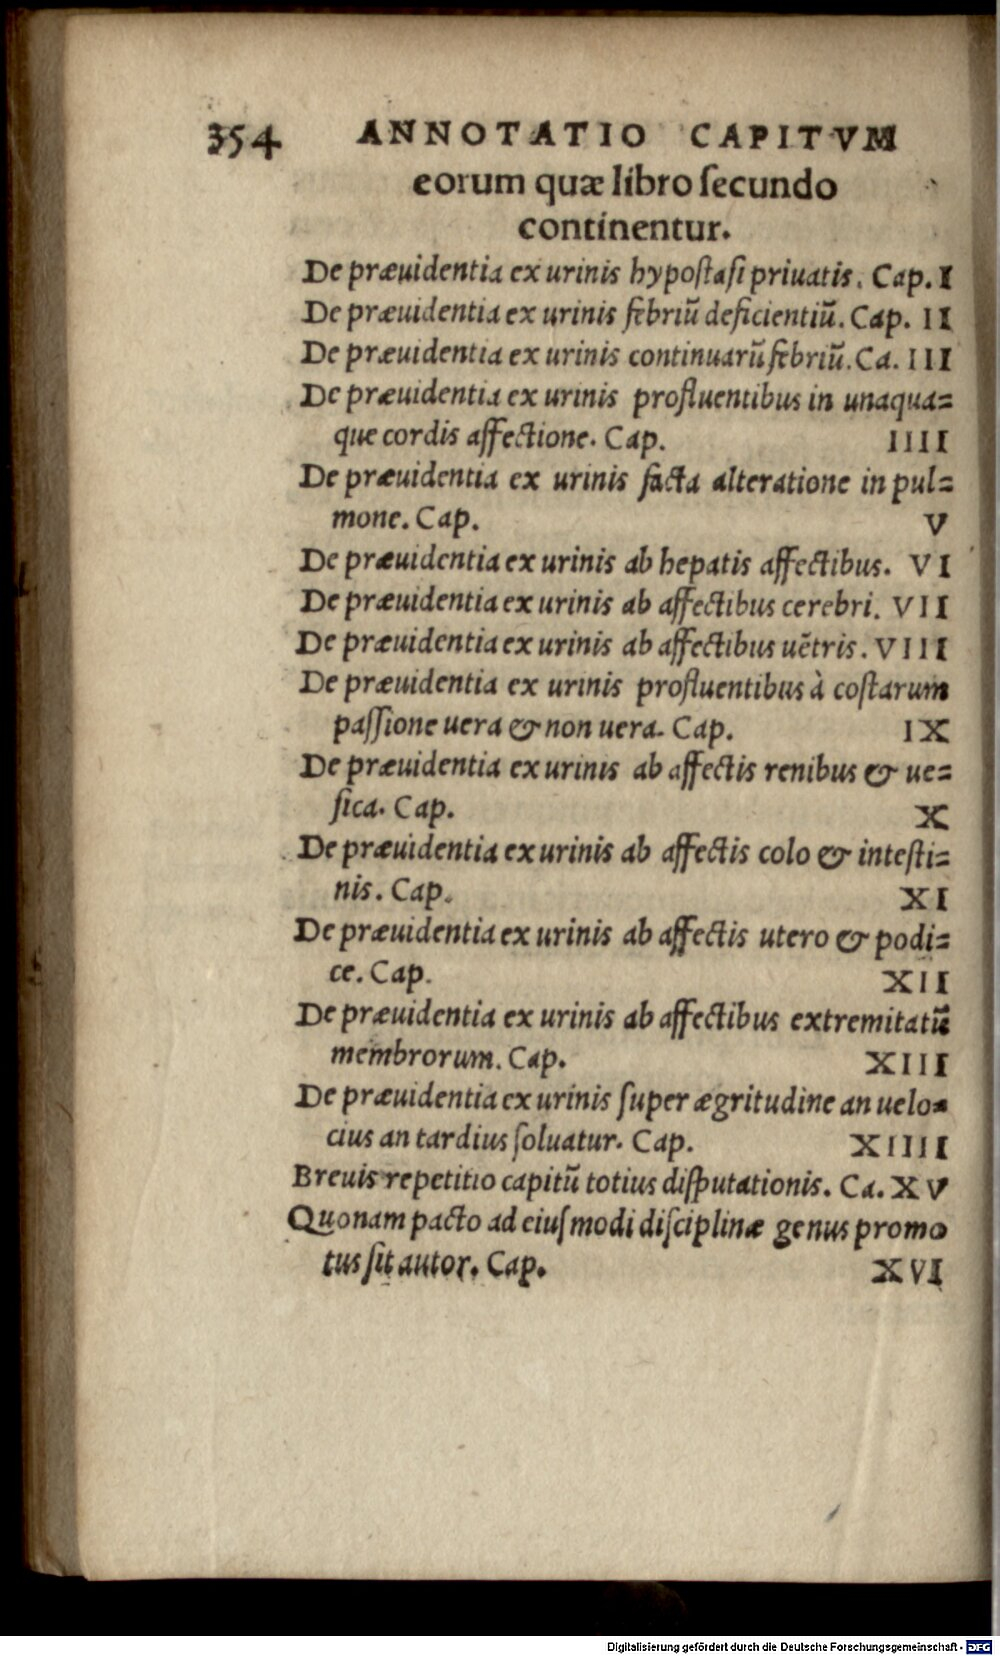 354 ANNOTATIO CAPITVM
eorum quæ libro ſecundo
continentur.
De præuidentia ex urinis hypoſtaſi priuatis. Cap. I
De præuidentia ex urinis febriũ deficientiũ. Cap. II
De præuidentia ex urinis continuarũ febriũ. Ca. III
De præuidentia ex urinis profluentibus in unaqua=
que cordis affectione. Cap. IIII
De præuidentia ex urinis facta alteratione in pul=
mone. Cap. V
De præuidentia ex urinis ab hepatis affectibus. VI
De præuidentia ex urinis ab affectibus cerebri. VII
De præuidentia ex urinis ab affectibus uẽtris. VIII
De præuidentia ex urinis profluentibus à coſtarum
paſſione uera & non uera. Cap. IX
De præuidentia ex urinis ab affectis renibus & ue=
ſica. Cap. X
De præuidentia ex urinis ab affectis colo & inteſti=
nis. Cap. XI
De præuidentia ex urinis ab affectis utero & podi=
ce. Cap. XII
De præuidentia ex urinis ab affectibus extremitatũ
membrorum. Cap. XIII
De præuidentia ex urinis ſuper ægritudine an uelo=
cius an tardius ſoluatur. Cap. XIIII
Breuis repetitio capitũ totius diſputationis. Ca. XV
Quonam pacto ad eiuſmodi diſciplinæ genus promo
tus ſit autor. Cap. XVI
Digitalisierung gefördert durch die Deutsche Forschungsgemeinschaft - DFG